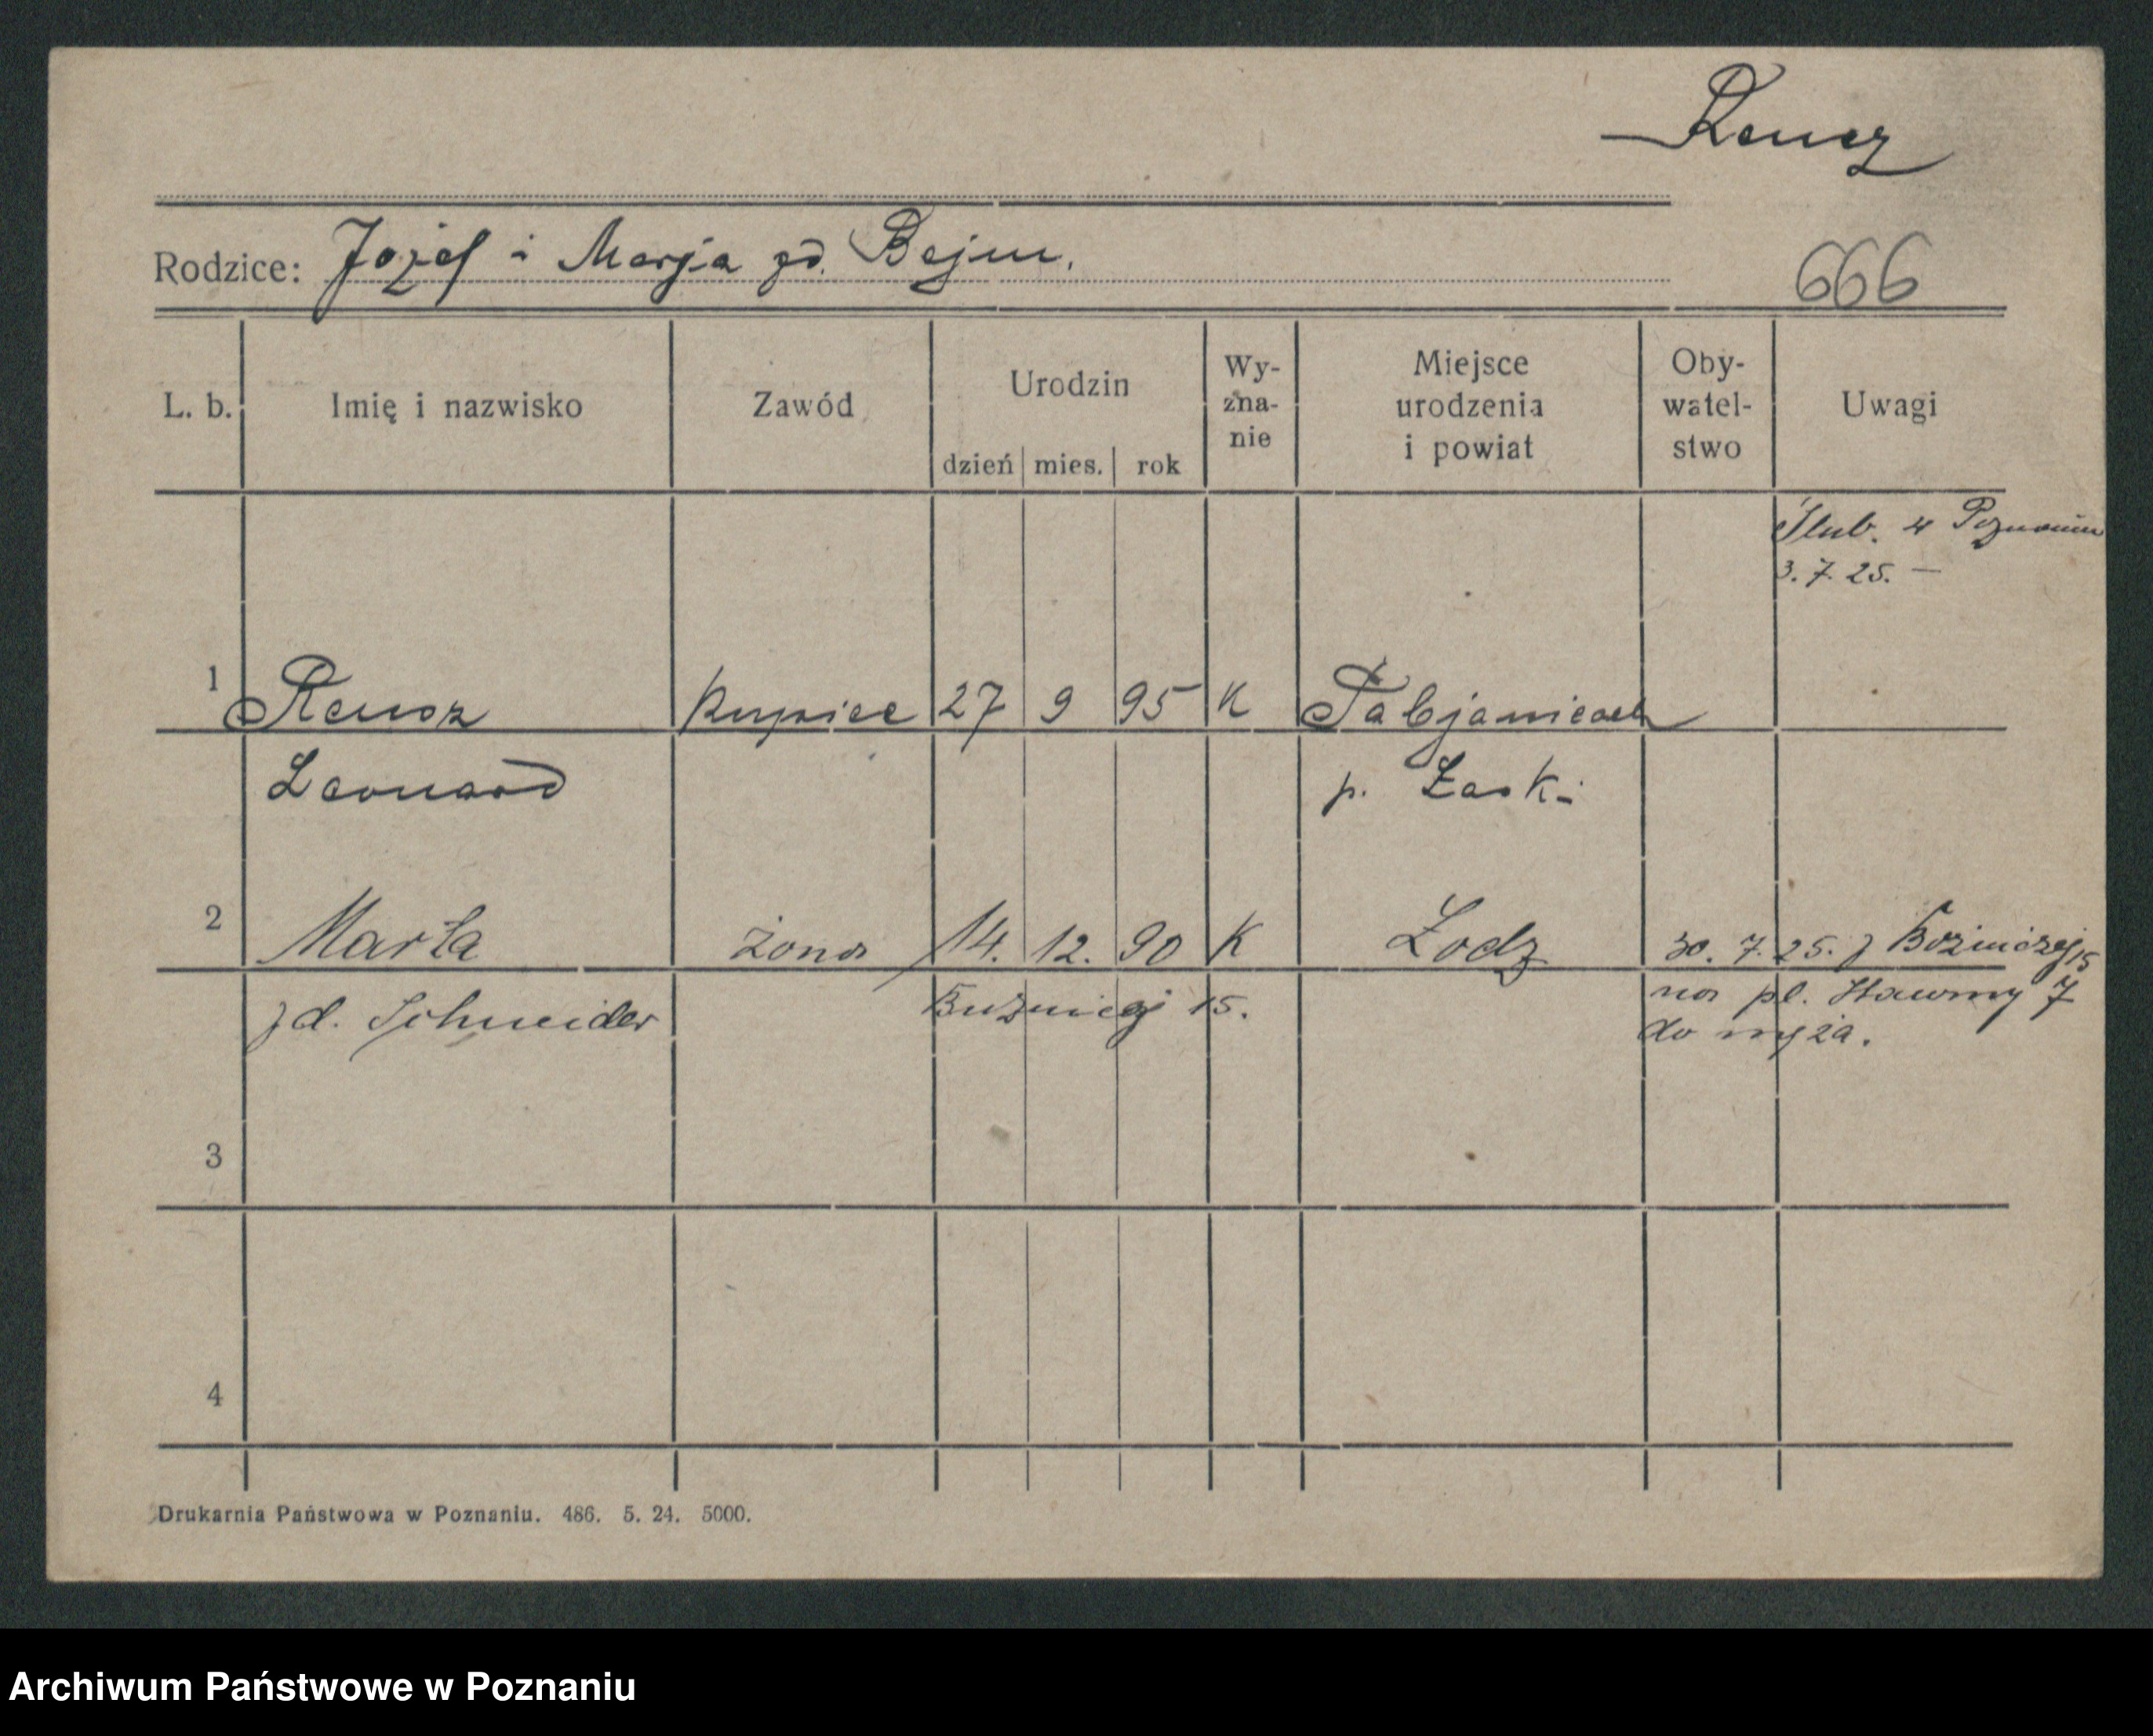 Rencz
Rodzice: Józef i Marja zd. Bejm.
666
L. b. Imię i nazwisko Zawód Urodzin dzień mies. rok Wy-zna-nie Miejsce urodzenia i powiat Oby-watel-stwo Uwagi
Ślub. w Poznaniu
3. 7. 25. —
1 Rencz kupiec 27 9 95 K Pabjanicach
Leonard p. Łaski
2 Marta żona 14. 12. 90 K Łodz 30. 7. 25. z Bóżniczej 15
zd. Schneider 15. na pl. Sławny 7
do męża.
3
4
Drukarnia Państwowa w Poznaniu. 486. 5. 24. 5000.
Archiwum Państwowe w Poznaniu